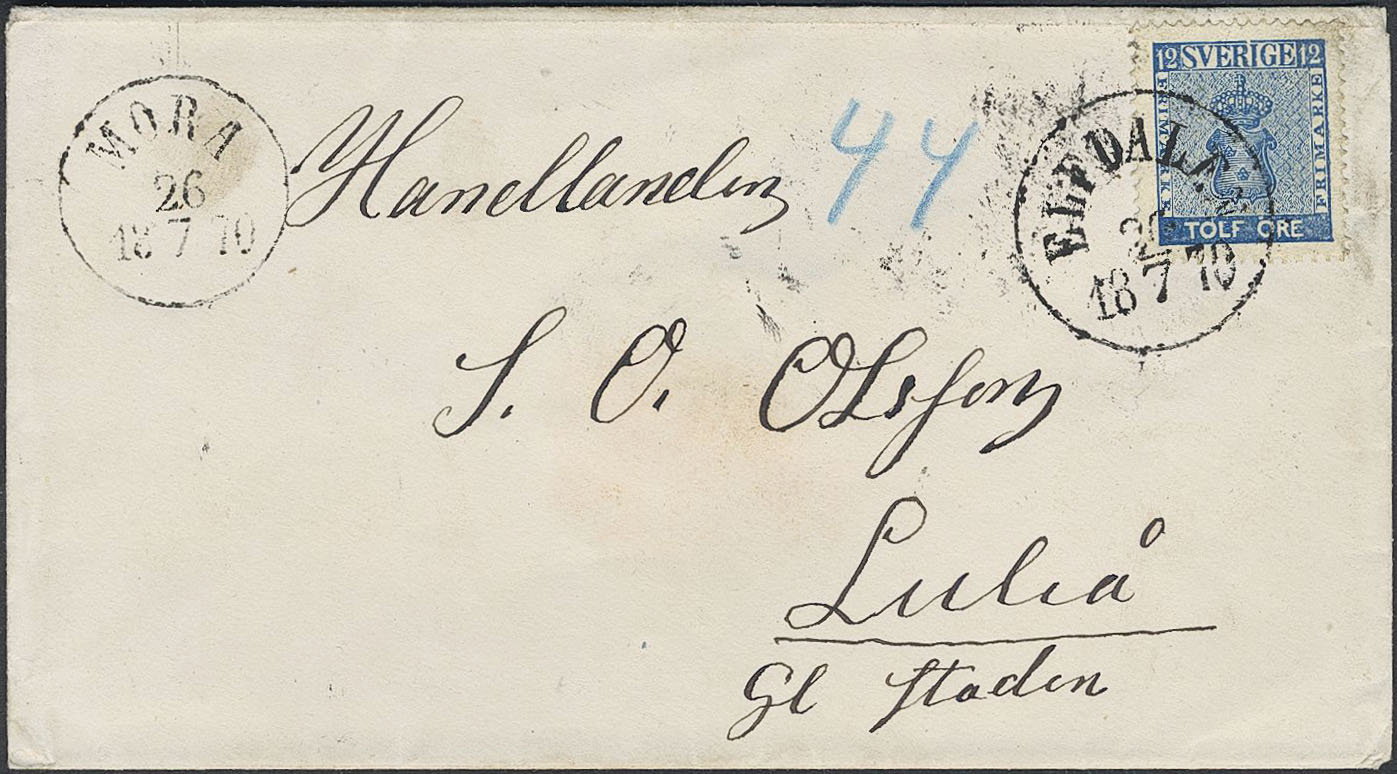 12 SVERIGE 12
FRIMÄRKE
FRIMÄRKE
TOLF ÖRE
MORA
26
18 7 70
ELFDALEN
18 7 70
Handlanden
44
S. O. Olsson
Luleå
Gl Staden